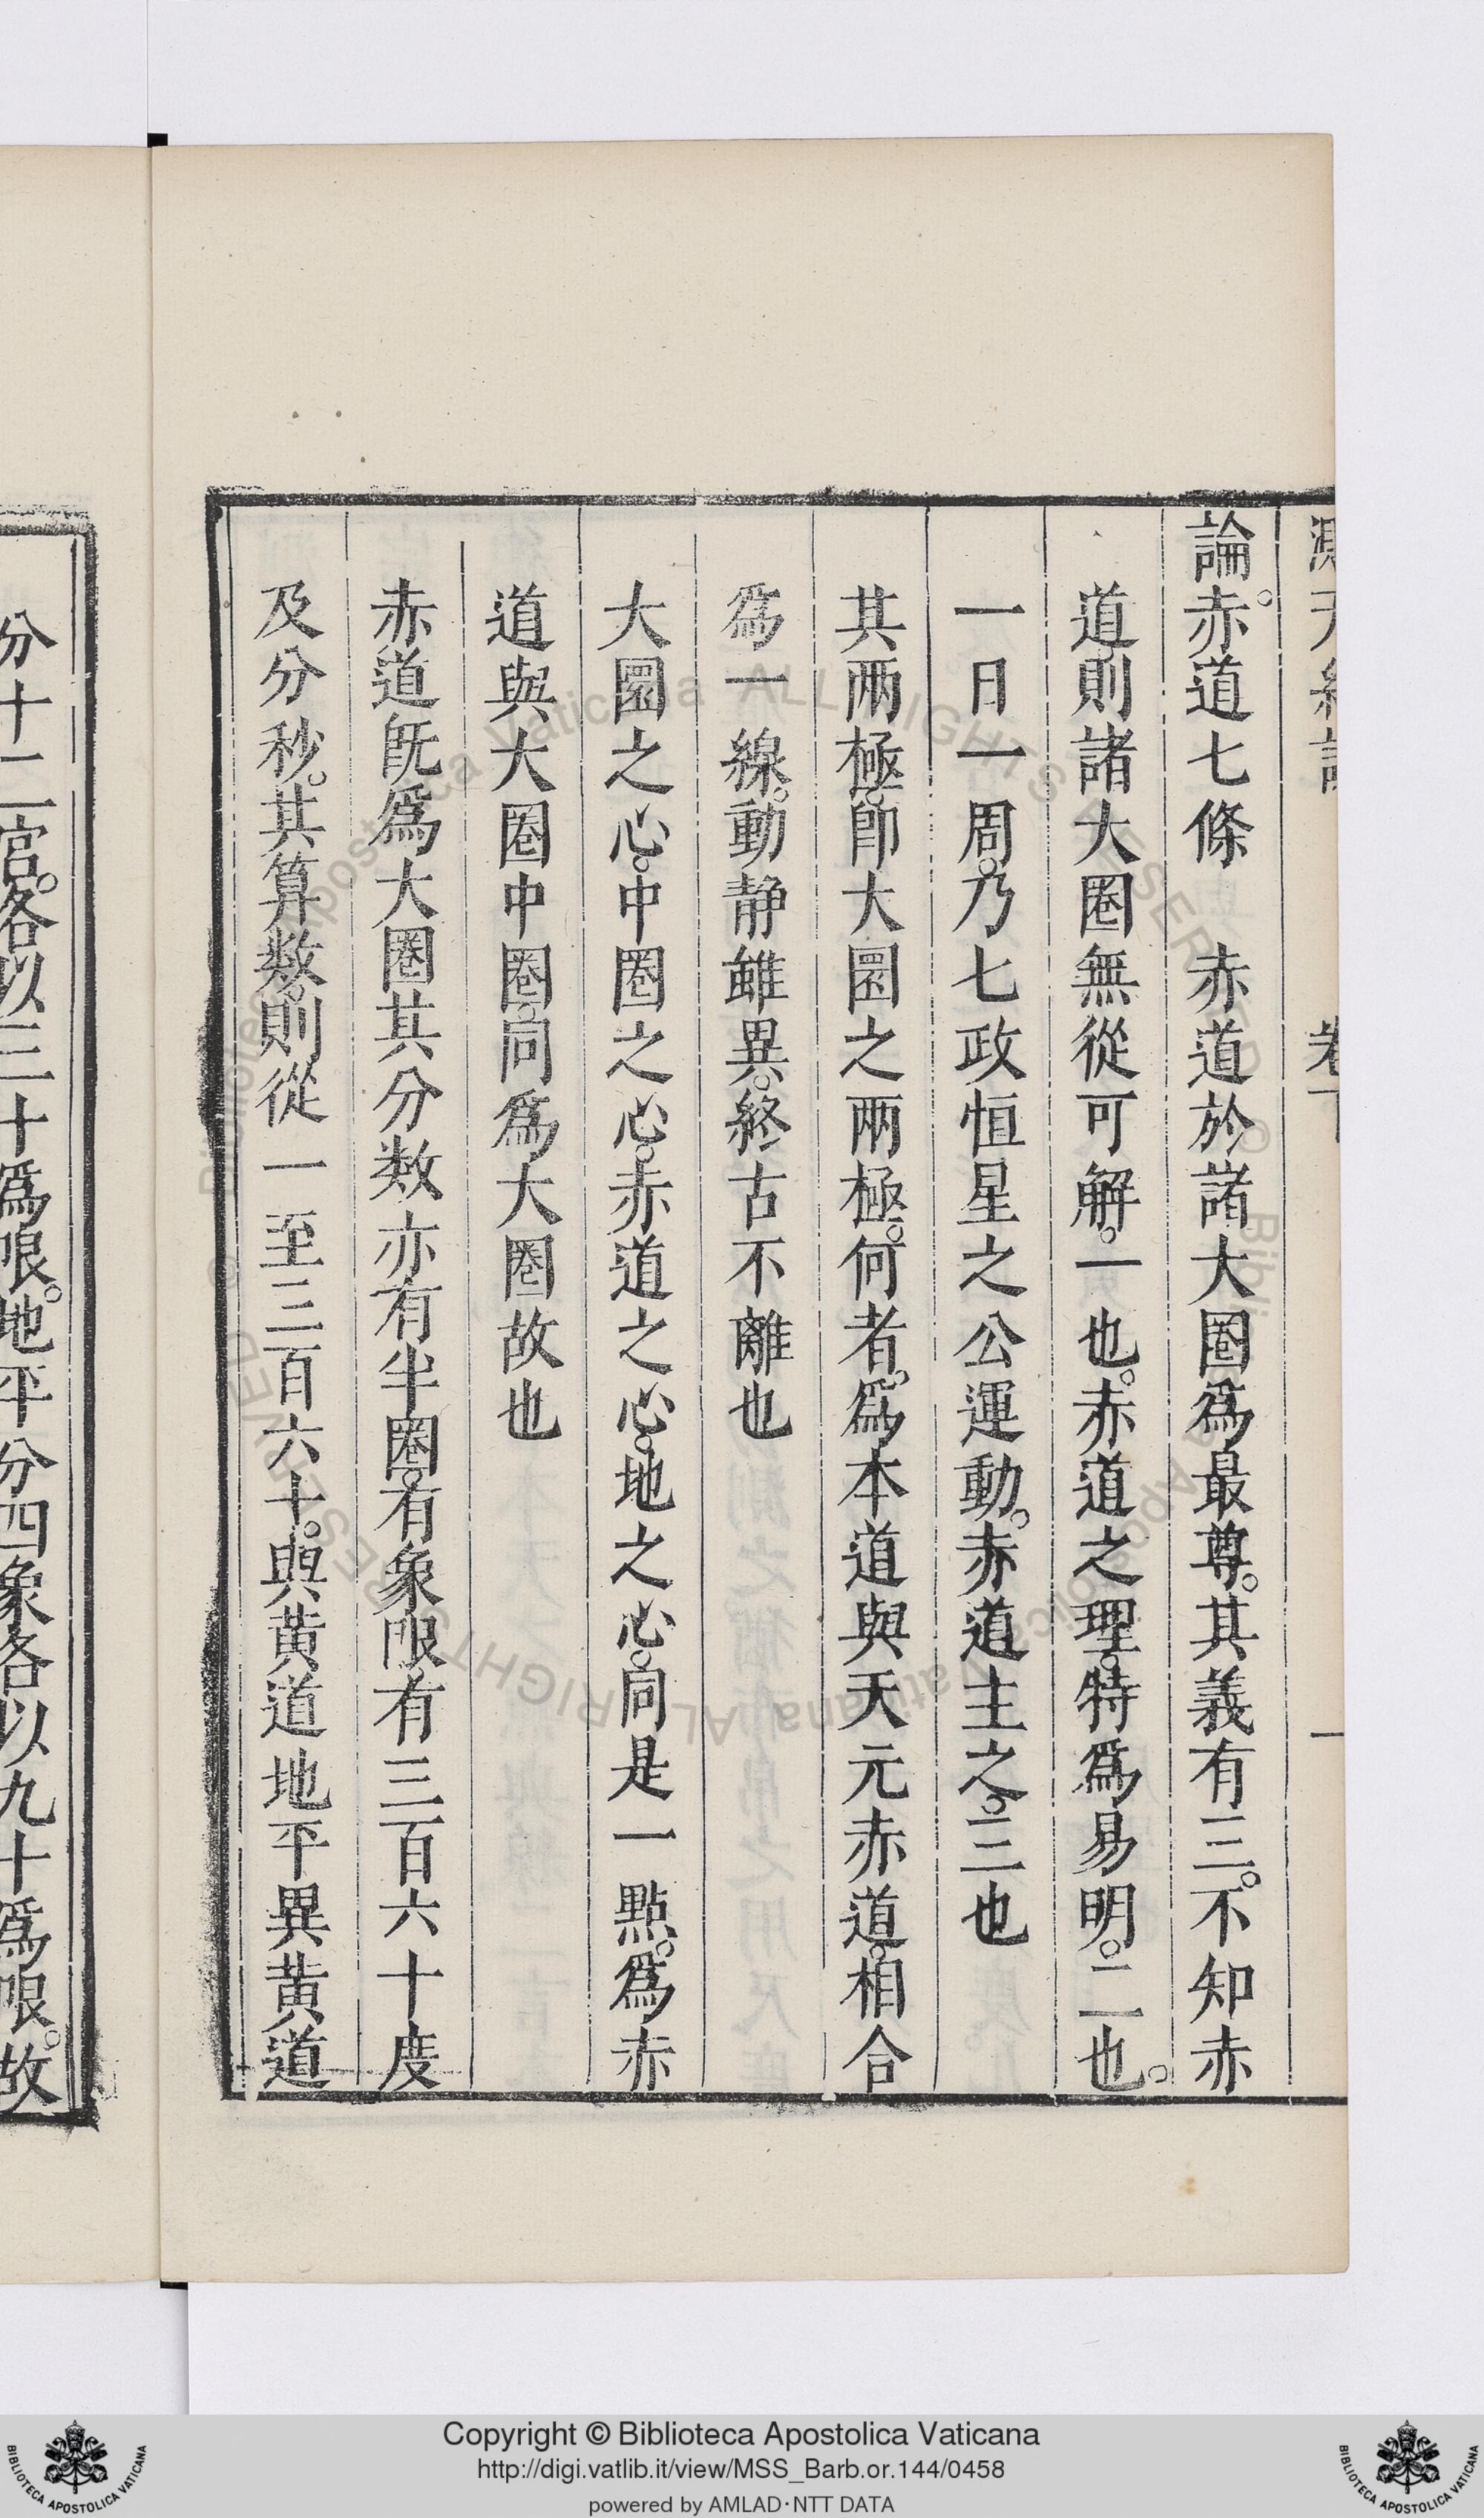 論赤道七條　赤道於諸大圈爲最尊。其義有三。不知赤
道。則諸大圈無從可解。一也。赤道之理。特爲易明。二也。
一日一周。乃七政恒星之公運動。赤道主之。三也
其兩極。卽大圜之兩極。何者。爲本道與天元赤道。相合
爲一線。動静雖異。終古不離也
大圜之心。中圈之心。赤道之心。地之心。同是一點。爲赤
道與大圈中圈。同爲大圈故也
赤道旣爲大圈其分数亦有半圈。有象限有三百六十度
及分秒。其算數。則從一至三百六十。與黄道地平異黄道
分十二宮。各以三十爲限。地平分四象各以九十爲限。故
Copyright © Biblioteca Apostolica Vaticana
http://digi.vatlib.it/view/MSS_Barb.or.144/0458
powered by AMLAD·NTT DATA
BIBLIOTECA APOSTOLICA VATICANA
BIBLIOTECA APOSTOLICA VATICANA